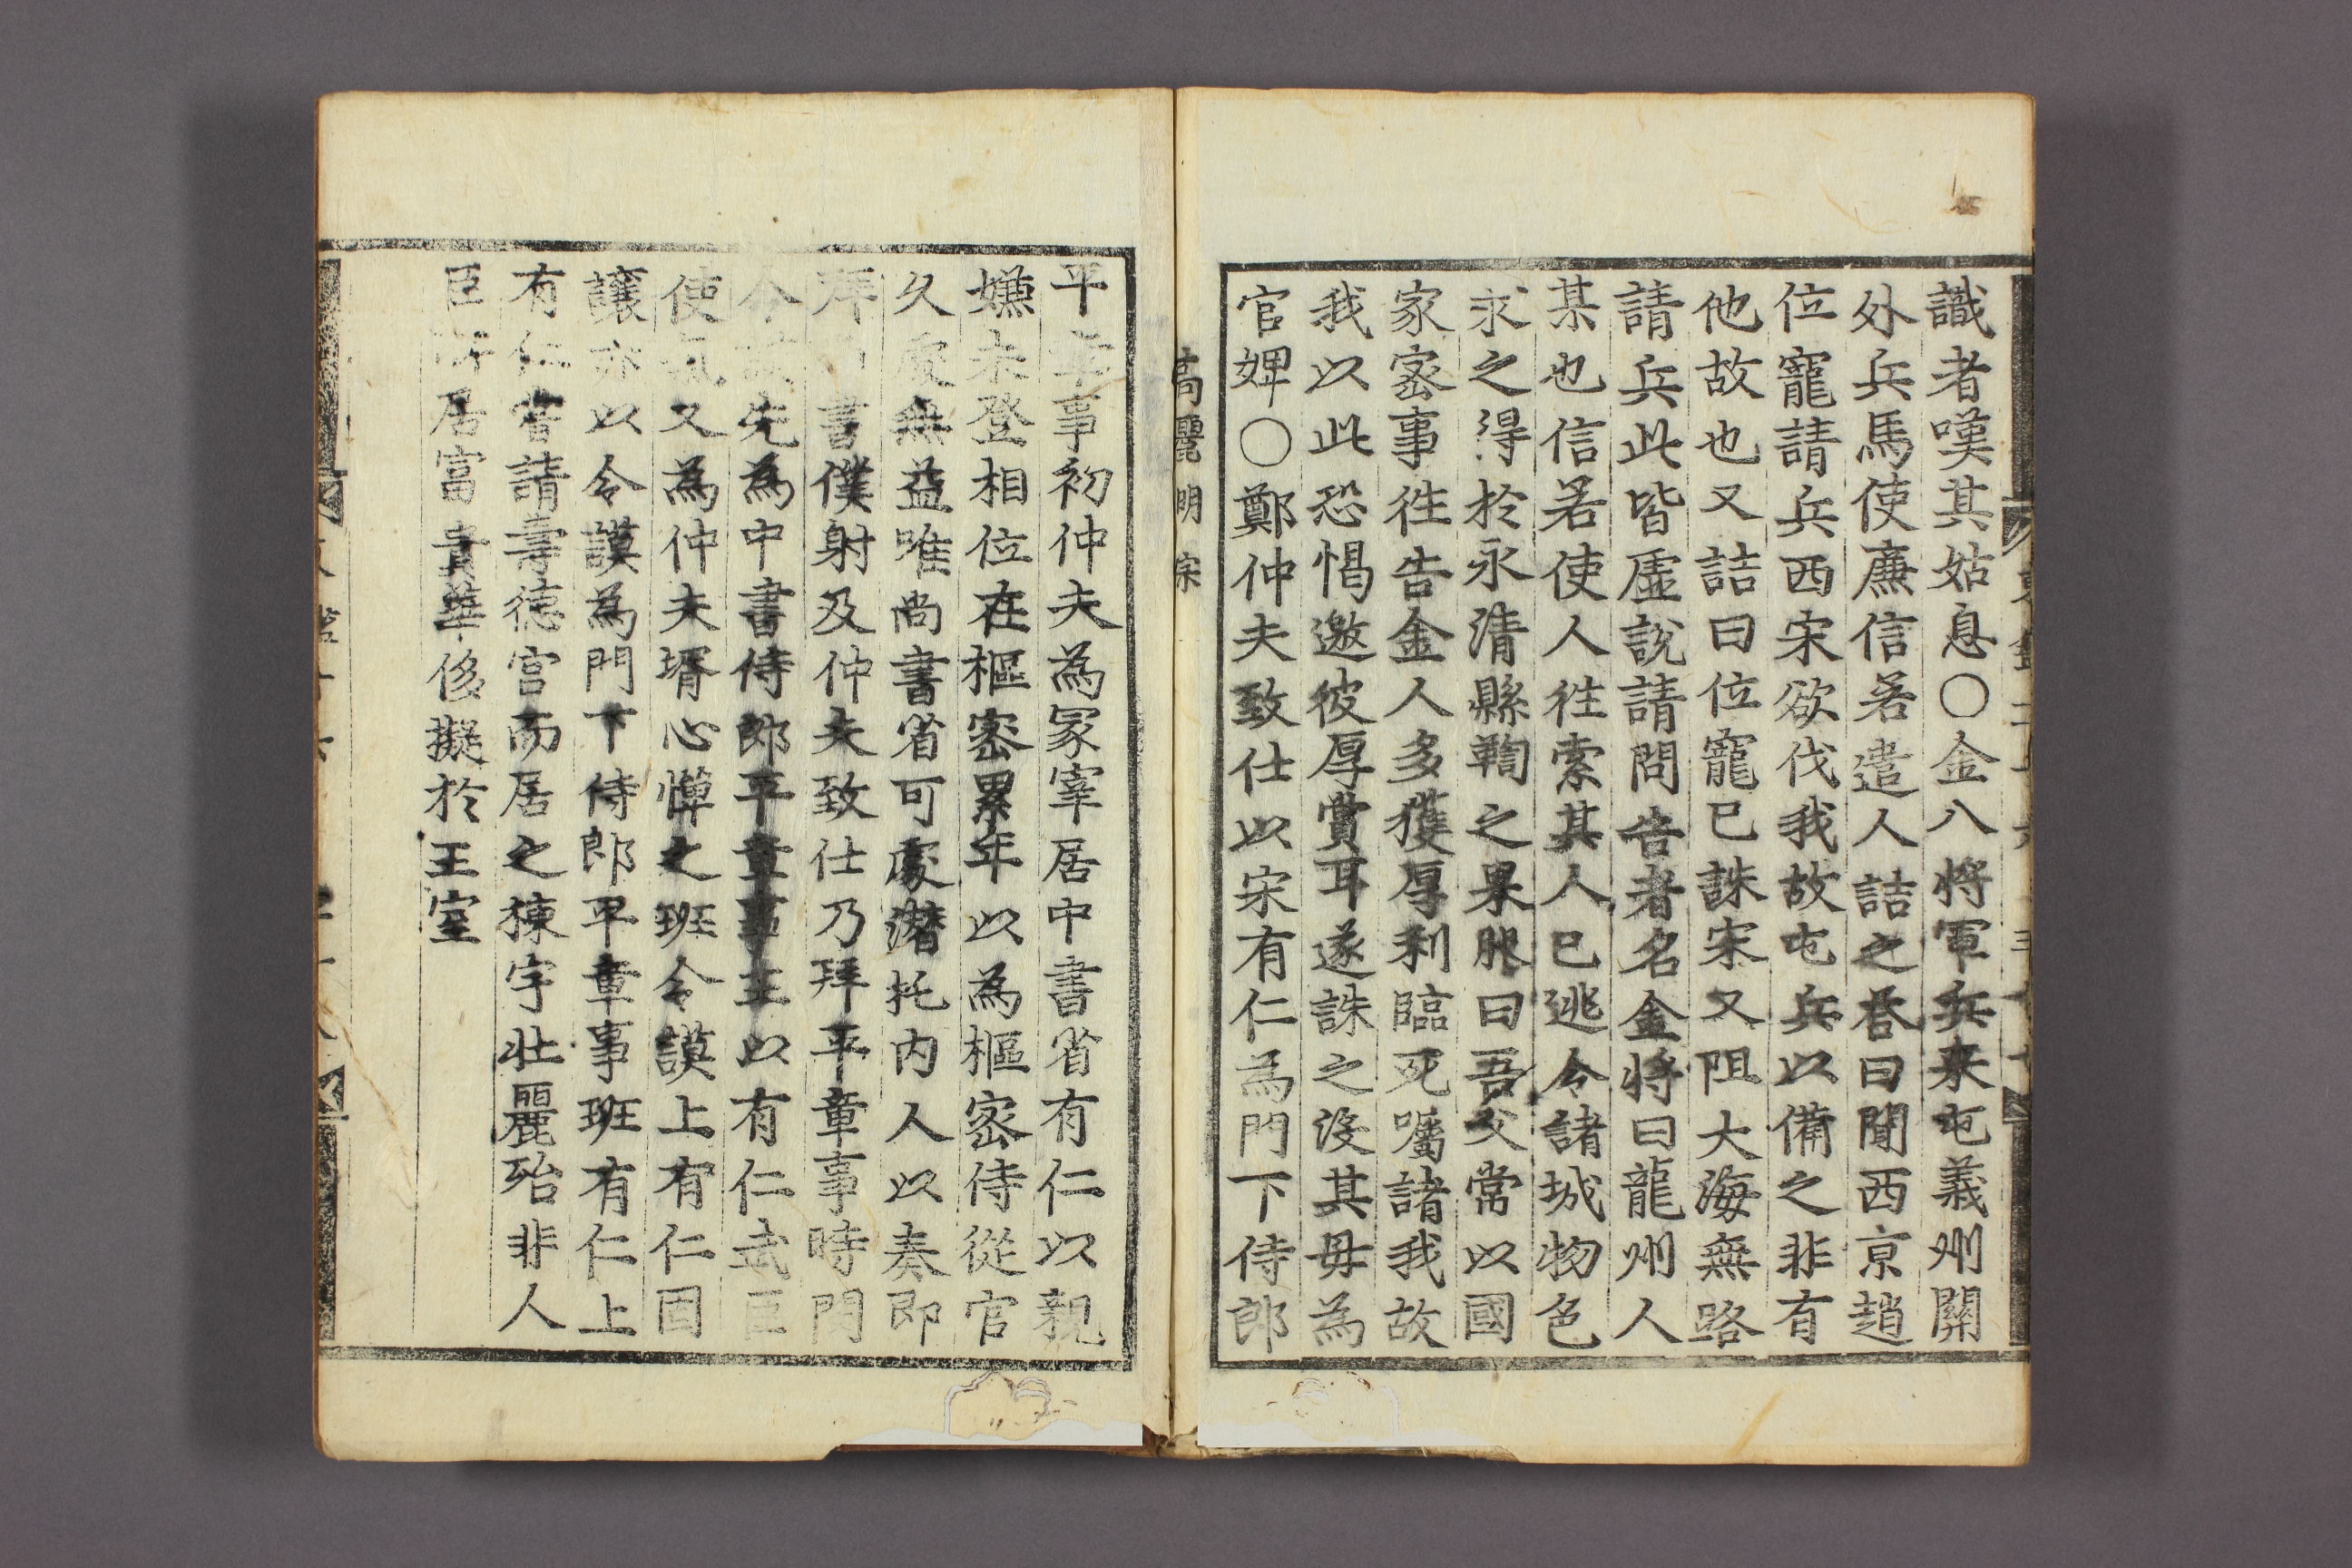 識者嘆其姑息○金八將軍兵来屯義州關
外兵馬使㢘信若遣人詰之答曰聞西京趙
位寵請兵西宋欲伐我故屯兵以備之非有
他故也又詰曰位寵已誅宋又阻大海無路
請兵此皆虛說請問告者名金將曰龍州人
某也信若使人徃索其人已逃令諸城物色
求之得於永淸縣鞫之果服曰吾父常以國
家密事徃告金人多獲厚利臨死囑諸我故
我以此恐愒邀彼厚賞耳遂誅之没其母為
官婢○鄭仲夫致仕以宋有仁為門下侍郎
高麗明宗
平章事初仲夫為冢宰居中書省有仁以親
嫌未登相位在樞密累年以為樞密侍從官
久處無益唯尚書省可處潜托内人以奏即
拜 書僕射及仲夫致仕乃拜平章事時閔
令謨先為中書侍郎平章事王以有仁武臣
使氣又為仲夫壻心憚之班令謨上有仁固
讓亦以令謨為門下侍郎平章事班有仁上
有仁嘗請壽德宫而居之棟宇壮麗殆非人
臣所居富貴華侈擬於王室